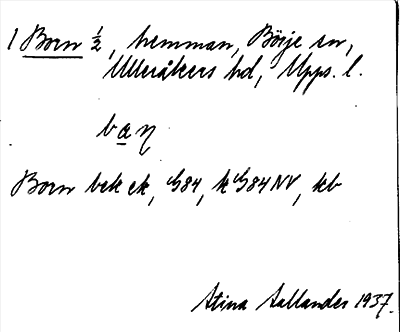 1 Born ½, hemman, Börje sn,
Ulleråkers hd, Upps. l.
Born bek ek, G84, k G84 NV, kb
Stina Aallander 1937.